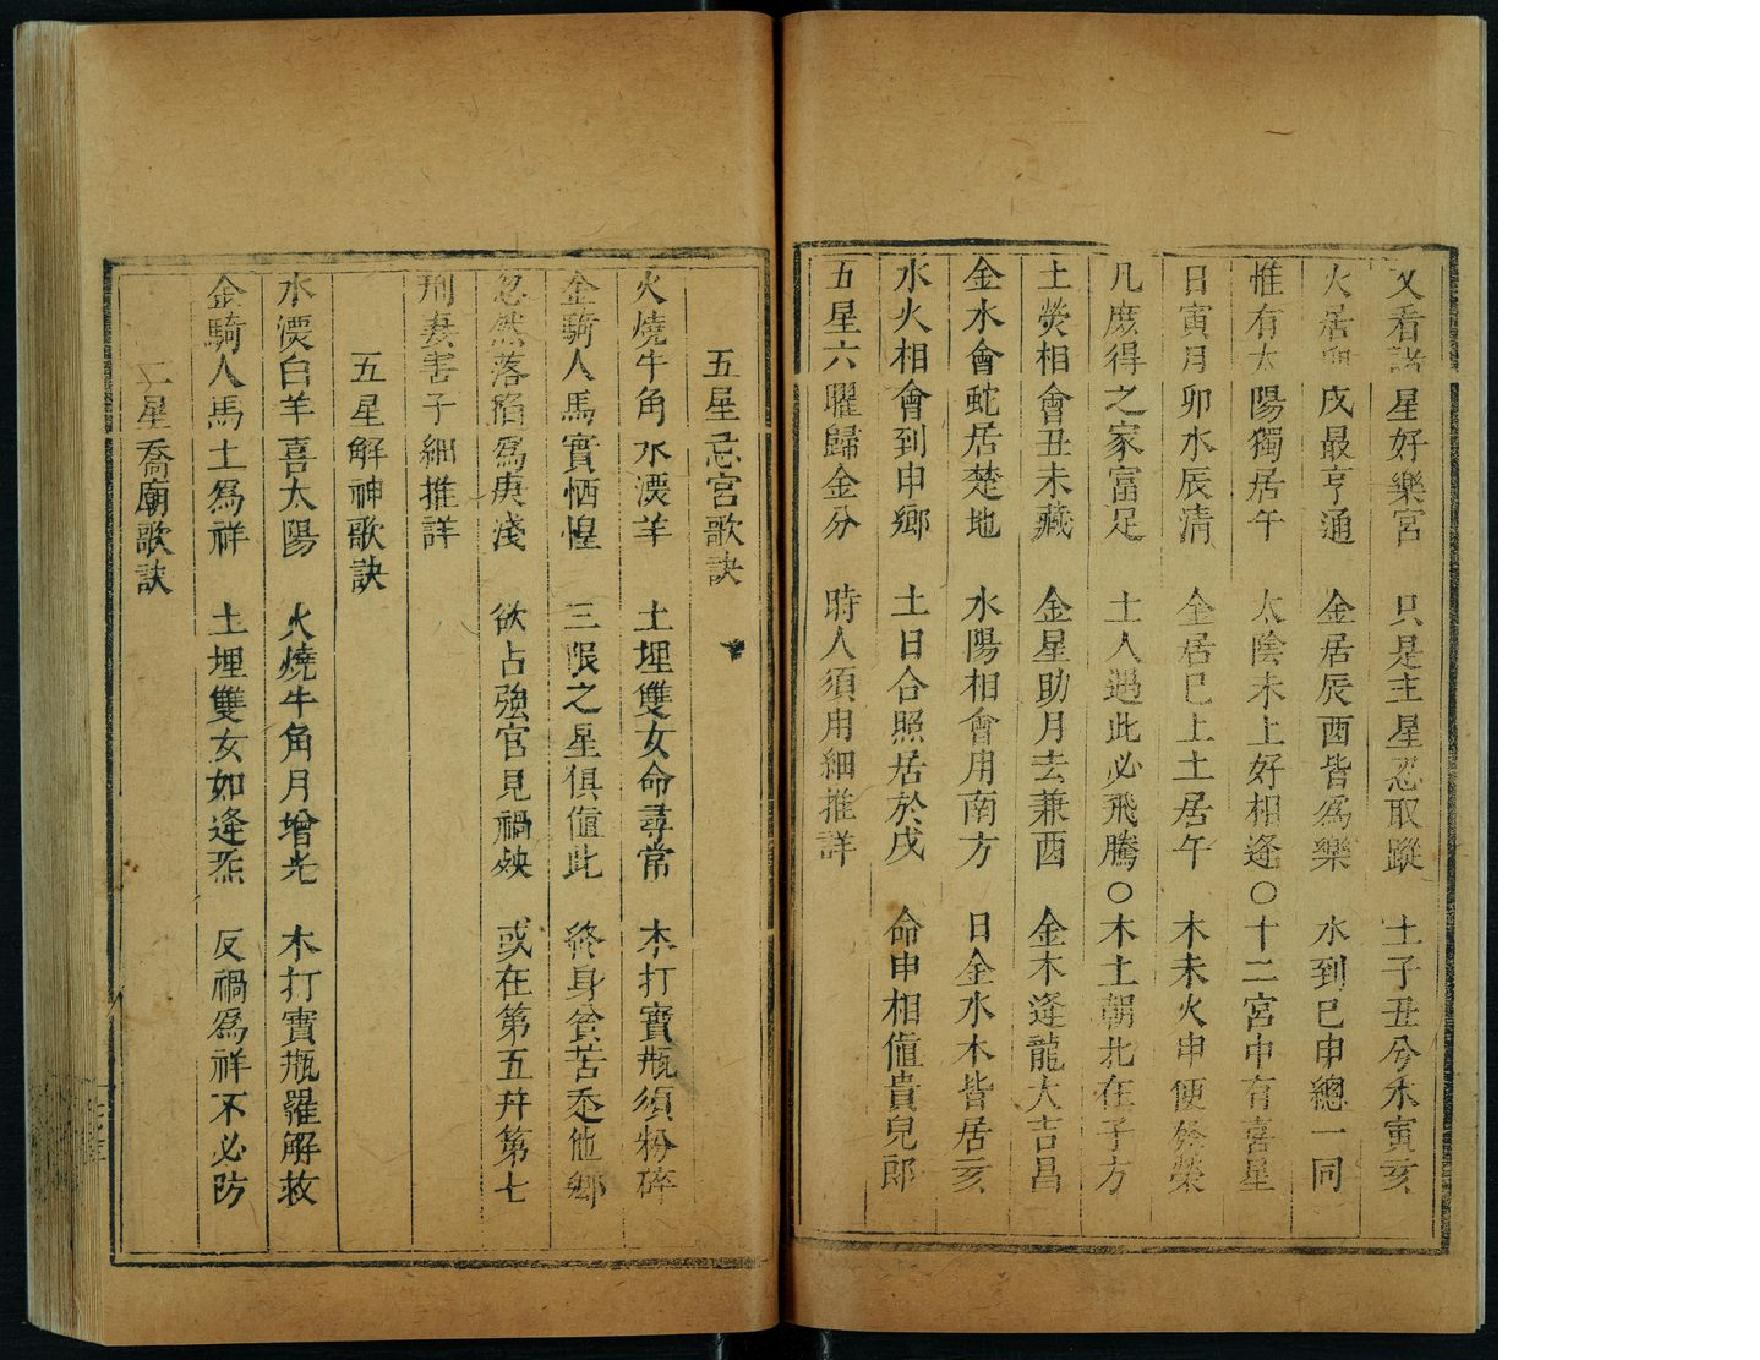 又看諸星好樂宮　只是主星忍取蹤　土子丑兮木寅亥
火居卯戌最亨通　金居辰酉皆為樂　水到巳申總一同
惟有太陽獨居午　太陰未上好相逢○十二宮中有喜星
日寅月卯水辰清　金居巳上土居午　木未火申便發榮
几庶得之家富足　土人遇此必飛騰○木土朝北在子方
土熒相會丑未藏　金星助月去兼酉　金木逢龍大吉昌
金水會蛇居楚地　水陽相會用南方　日金水木皆居亥
水火相會到申鄉　土日合照居於戌　命申相值貴兒郎
五星六曜歸金分　時人須用細推詳
五星忌宮歌訣
火燒牛角水溭羊　土埋雙女命尋常　木打寶瓶須粉碎
金騎人馬實恓惶　三限之星俱值此　終身貧苦忝他鄉
忽然落陷為庚淺　欲占強官見禍殃　或在第五幷第七
刑妻害子細推詳
五星解神歌訣
水溭白羊喜太陽　火燒牛角月增光　木打寶瓶羅解救
金騎人馬土為祥　土埋雙女如逢炁　反禍為祥不必防
星喬廟歌訣